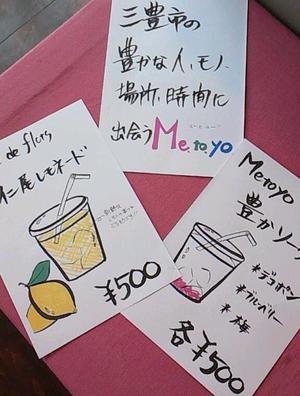 三豊市の
豊かな人、モノ、
場所、時間に
出会うMe.to.yo
de flots
仁尾レモネード
¥500
Me to yo
豊かソーダ
*デコポン
*ブルーベリー
*梅
各¥500